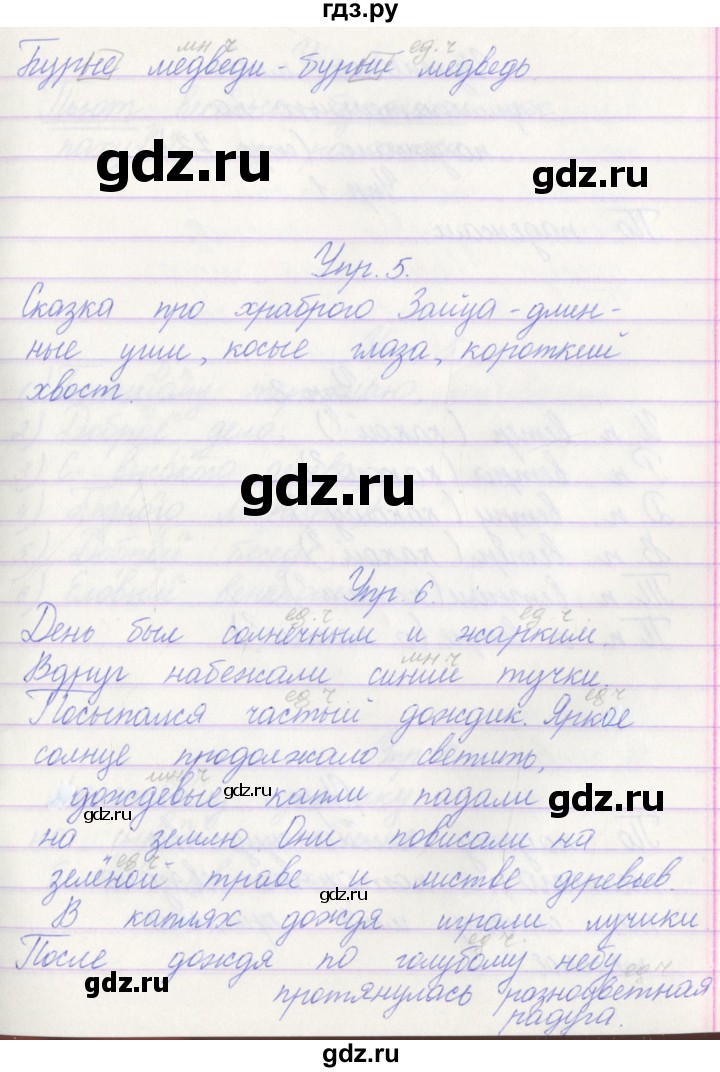 гдз.ру
мн.ч ед.ч
Бурые медведи - бурый медведь.
gdz.ru
gdz.ru
Упр. 5.
Сказка про храброго Зайца - длин-
ные уши, косые глаза, короткий
хвост.
gdz.ru
Упр. 6.
ед.ч ед.ч
День был солнечным и жарким.
мн.ч
Вдруг набежали синии тучки.
ед.ч ед.ч
Посыпался частый дождик. Яркое
солнце продолжало светить,
gdz.ru
мн.ч
дождевые капли падали
gdz.ru
gdz.ru
на землю Они повисали на
ед.ч
зелёной траве и листве деревьев.
gdz.ru
В каплях дождя играли лучики
ед.ч.
После дождя по голубому небу
ед.ч
gdz.ru
протянулась разноцветная
gdz.ru
радуга.
gdz.ru